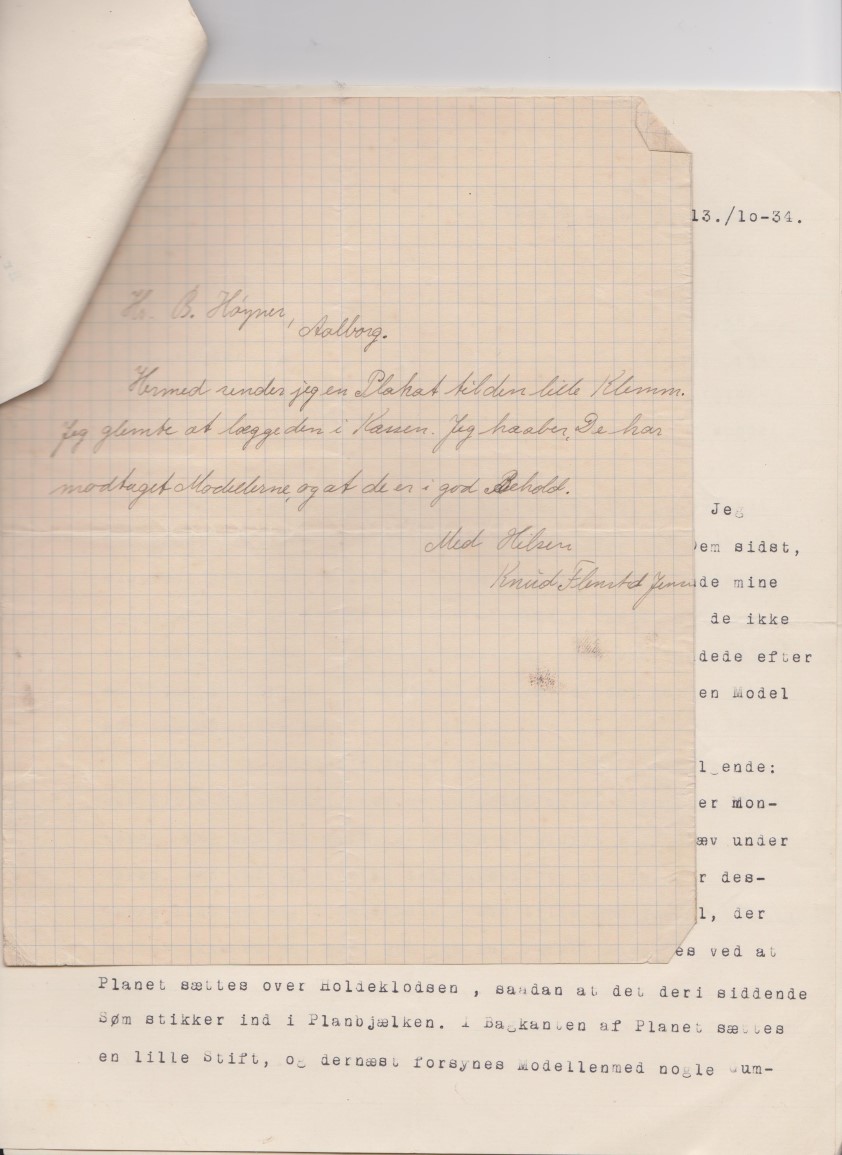 13./10-34.
Hr. B. Høyner,
Aalborg.
Hermed sender jeg en Plakat til den lille Klemm.
Jeg glemte at lægge den i Kassen. Jeg haaber, De har
modtaget Modellerne, og at de er i god Behold.
Med Hilsen
Knud Flensted Jensen
Jeg
Dem sidst,
de mine
de ikke
dede efter
en Model
lgende:
er mon-
æv under
r des-
l, der
es ved at
Planet sættes over Holdeklodsen , saadan at det deri siddende
Søm stikker ind i Planbjælken. I Bagkanten af Planet sættes
en lille Stift, og dernæst forsynes Modellenmed nogle Gum-